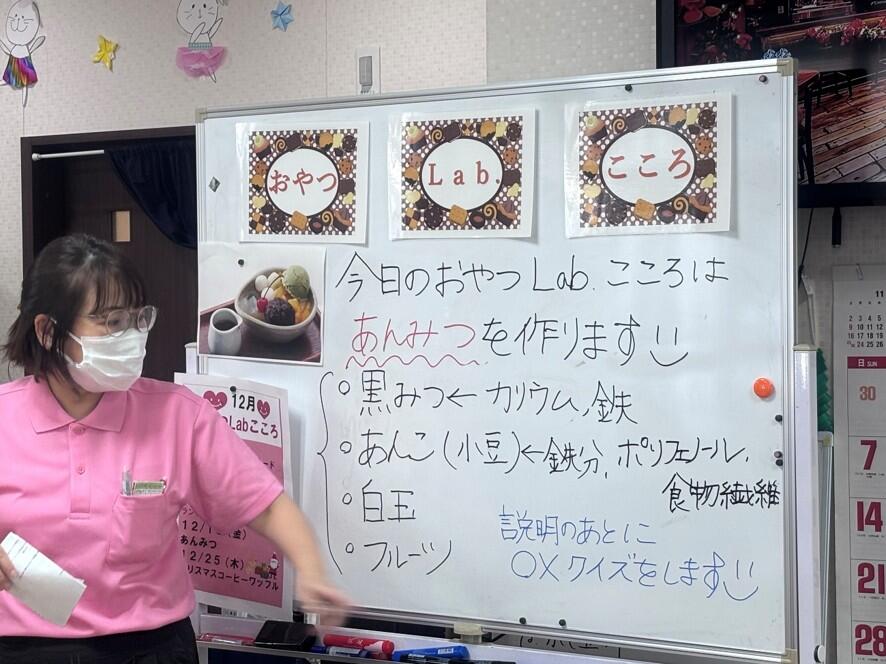 おやつ
Lab.
こころ
今日のおやつLab.こころは
あんみつを作ります
黒みつ←カリウム,鉄
あんこ(小豆)←鉄分,ポリフェノール,
食物繊維
白玉
フルーツ
説明のあとに
○×クイズをします
12月
Labこころ
(金)
あんみつ
12/25(木)
リスマスコーヒーワッフル
11
2 3 4 5 6 7 8
日 SUN
30
7
14
21
28